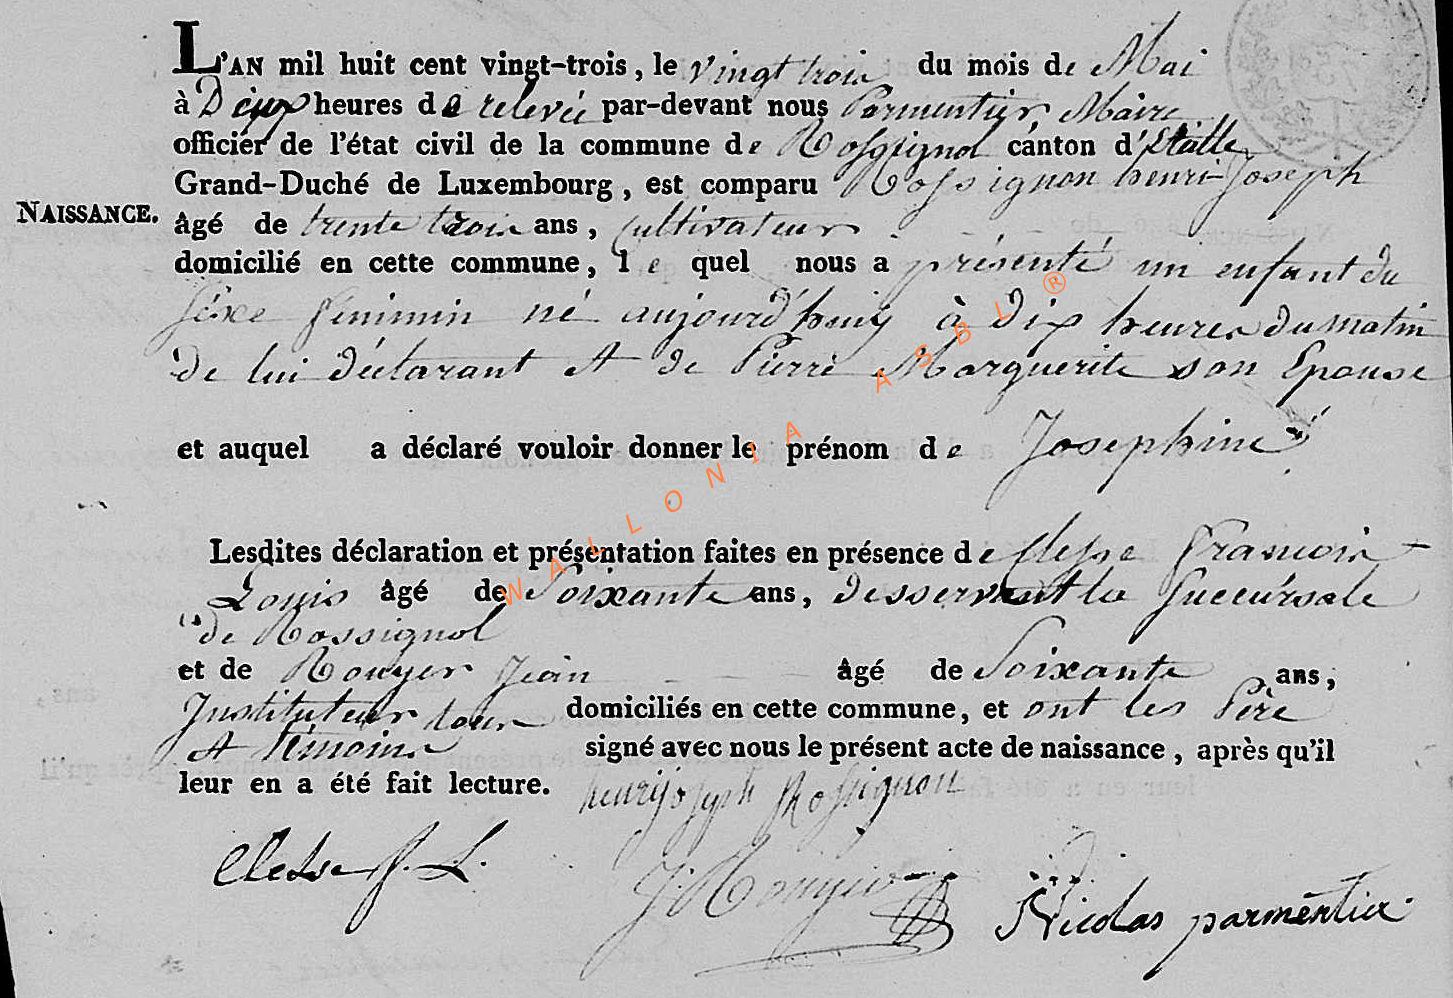 L'AN mil huit cent vingt-trois, le vingt trois du mois de Mai
à Deux heures de relevée par-devant nous Parmentier Maire
officier de l'état civil de la commune de Rossignol canton d'Etalle
Grand-Duché de Luxembourg, est comparu Rossignon henri-Joseph
NAISSANCE.
âgé de trente trois ans, Cultivateur
domicilié en cette commune, lequel nous a présenté un enfant du
séxe féminin né aujourd'huiy à Dix heures du matin
de lui déclarant et de Pierre Marguerite son Epouse
et auquel a déclaré vouloir donner le prénom de Josephine
Lesdites déclaration et présentation faites en présence de Clesse Francois
Louis âgé de Soixante ans, desservant la Succursale
de Rossignol
et de Rouyer Jean âgé de Soixante ans,
Instituteur tous domiciliés en cette commune, et ont les Père
et témoins signé avec nous le présent acte de naissance, après qu'il
leur en a été fait lecture.
henry joseph Rossignon
Clesse f. L.
J. Rouyer
Nicolas parmentier
WALLONIA ASBL ®